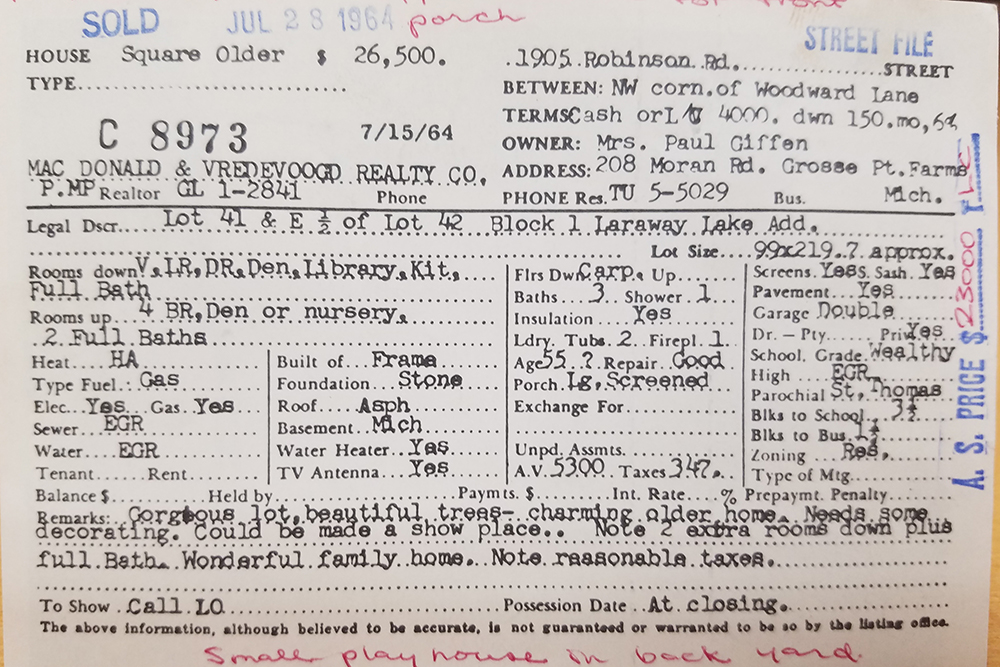 SOLD JUL 28 1964 porch
STREET FILE
HOUSE Square Older $ 26,500.
TYPE
C 8973 7/15/64
MAC DONALD & VREDEVOOGD REALTY CO.
P.MP Realtor GL 1-2841 Phone
1905 Robinson Rd. STREET
BETWEEN: NW corn.of Woodward Lane
TERMS Cash or L/C 4000. dwn 150.mo, 6%
OWNER: Mrs. Paul Giffen
ADDRESS: 208 Moran Rd. Grosse Pt.Farms
PHONE Res. TU 5-5029 Bus. Mich.
Legal Dscr. Lot 41 & E ½ of Lot 42 Block 1 Laraway Lake Add.
Lot Size 99x219.7 approx.
Rooms down V,LR,DR,Den,Library,Kit,
Full Bath
Rooms up 4 BR,Den or nursery,
2 Full Baths
Heat HA
Type Fuel: Gas
Elec. Yes Gas. Yes
Sewer EGR
Water EGR
Tenant Rent
Built of Frame
Foundation Stone
Roof Asph
Basement Mich
Water Heater Yes
TV Antenna Yes
Flrs Dwn Carp. Up
Baths 3 Shower 1
Insulation Yes
Ldry. Tubs 2 Firepl. 1
Age 55 ? Repair Good
Porch Lg, Screened
Exchange For
Unpd. Assmts.
A.V. 5300 Taxes 347.
Screens. Yes S. Sash. Yes
Pavement Yes
Garage Double
Dr. – Pty. Pri. Yes
School. Grade Wealthy
High EGR
Parochial St. Thomas
Blks to School 3½
Blks to Bus. 1½
Zoning Res.
Type of Mtg.
A. S. PRICE $ 23000
Balance $ Held by Paymts. $ Int. Rate % Prepaymt. Penalty
Remarks: Gorgeous lot, beautiful trees- charming older home. Needs some
decorating. Could be made a show place.. Note 2 extra rooms down plus
full Bath. Wonderful family home. Note reasonable taxes.
To Show Call LO Possession Date At closing.
The above information, although believed to be accurate, is not guaranteed or warranted to be so by the listing office.
Small playhouse in back yard.